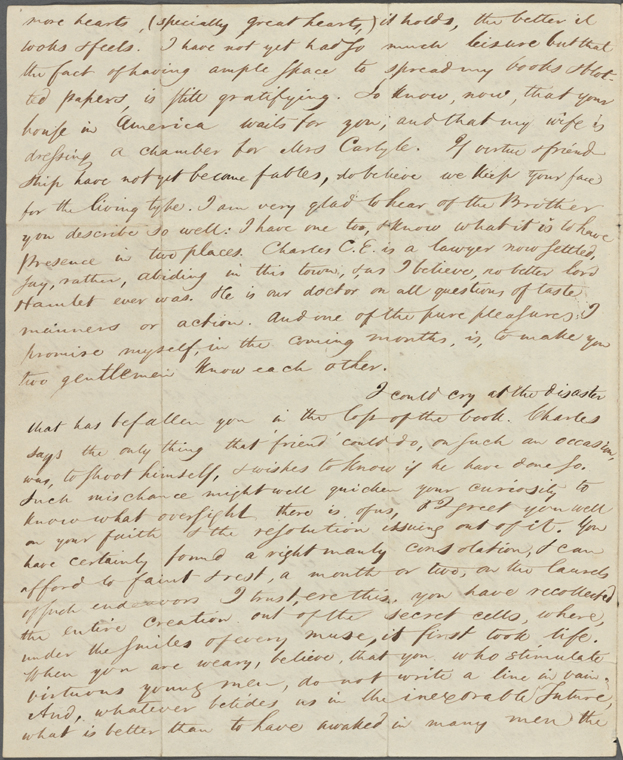 more hearts, (specially great hearts,) it holds, the better it
looks & feels. I have not yet had so much leisure but that
the fact of having ample space to spread my books & blot-
ted papers, is still gratifying. So know, now, that your
house in America waits for you; and that my wife is
dressing a chamber for Mrs Carlyle. If virtue & friend
ship have not yet become fables, do believe we keep your face
for the living type. I am very glad to hear of the Brother
you describe so well: I have one too, & know what it is to have
presence in two places. Charles C. E. is a lawyer now settled,
say, rather, abiding in this town, & as I believe, no better lord
Hamlet ever was. He is our doctor on all questions of taste
manners or action. And one of the pure pleasures I
promise myself, in the coming months, is, to make you
two gentlemen know each other.
I could cry at the disaster
that has befallen you in the loss of the book. Charles
says the only thing that friend could do, on such an occasion,
was, to shoot himself, & wishes to know if he have done so.
Such mischance might well quicken your curiosity to
know what oversight there is of us, & I greet you well
on your faith & the resolution issuing out of it. You
have certainly found a right manly consolation, & can
afford to faint & rest, a month or two, on the laurels
of such endeavors I trust, ere this, you have recollected
the entire creation out of the secret cells, where,
under the smiles of every muse, it first took life.
When you are weary, believe, that you who stimulate
virtuous young men, do not write a line in vain.
And, whatever betides us in the inexorable Future,
what is better than to have awaked in many men the